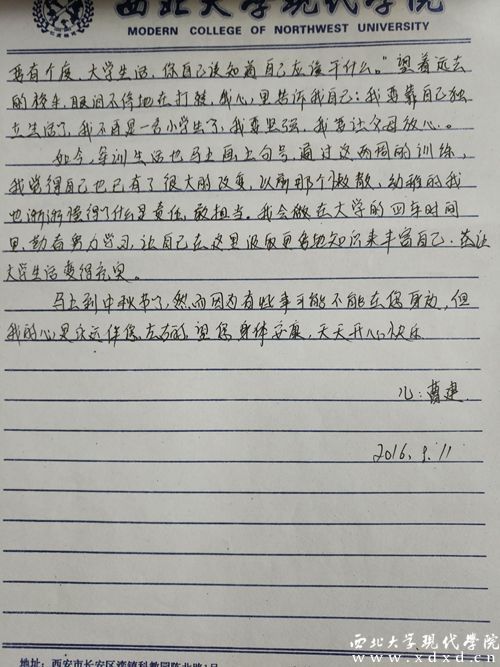 西北大学现代学院
MODERN COLLEGE OF NORTHWEST UNIVERSITY
要有个度，大学生活，你自己该知道自己应该干什么。”望着远去
的轿车，眼泪不停地在打转，我心里告诉我自己：我要靠自己独
立生活了，我不再是一名小学生了，我要坚强，我要让父母放心。
如今，军训生活也马上画上句号，通过这两周的训练，
我觉得自己也已有了很大的改变，以前那个傲散、幼稚的我
也渐渐懂得了什么是责任、敢担当。我会做在大学的四年时间
里，勤奋努力学习，让自己在这里汲取更多的知识来丰富自己，并让
大学生活变得充实。
马上到中秋节了，然而因为有些事可能不能在您身边，但
我的心是永远伴您左右的，望您身体安康，天天开心快乐
儿：曹建
2016.9.11
西北大学现代学院
www.xdxd.cn
地址：西安市长安区滦镇科教园陈北路1号